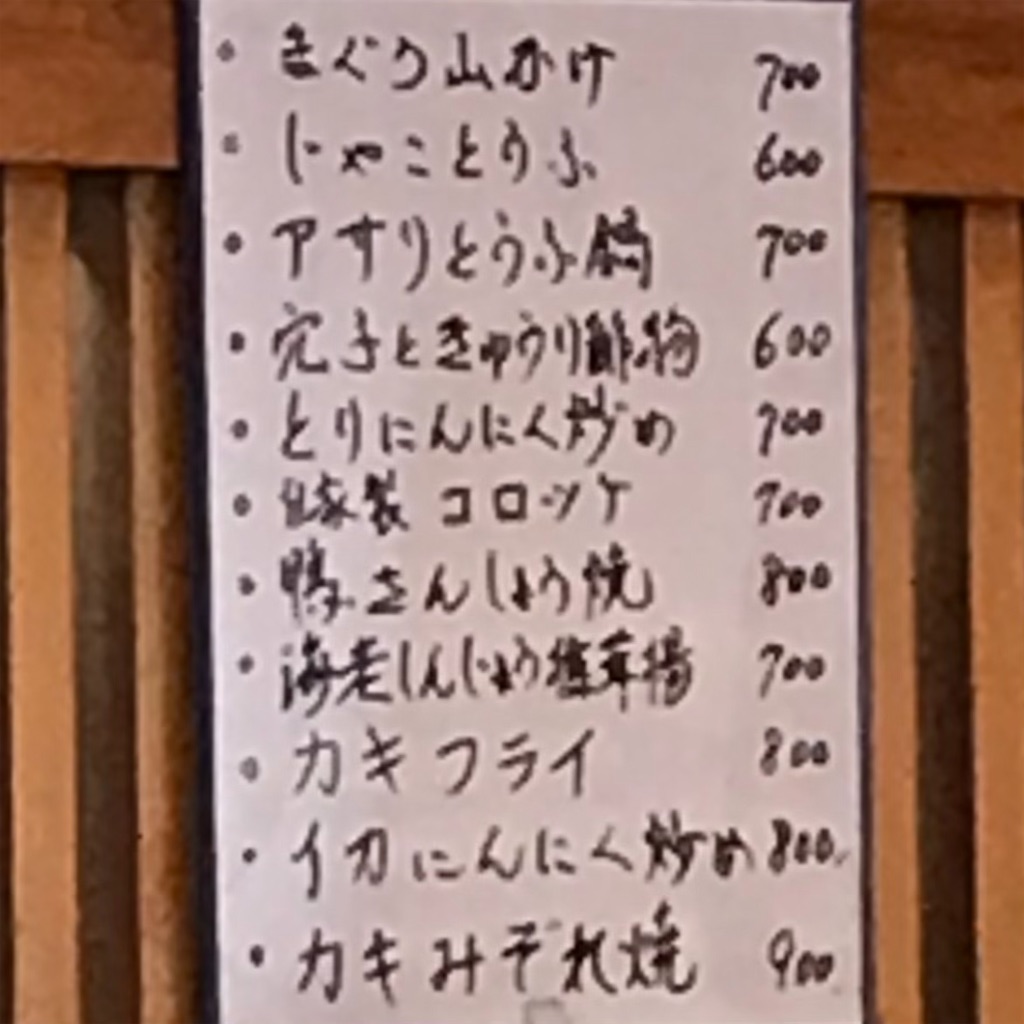 ・まぐろ山かけ 700
・じゃことうふ 600
・アサリとうふ鍋 700
・穴子ときゅうり酢の物 600
・とりにんにく炒め 700
・自家製コロッケ 700
・鴨さんしょう焼 800
・海老しんじょう 700
・カキフライ 800
・イカにんにく炒め 800
・カキみぞれ焼 900